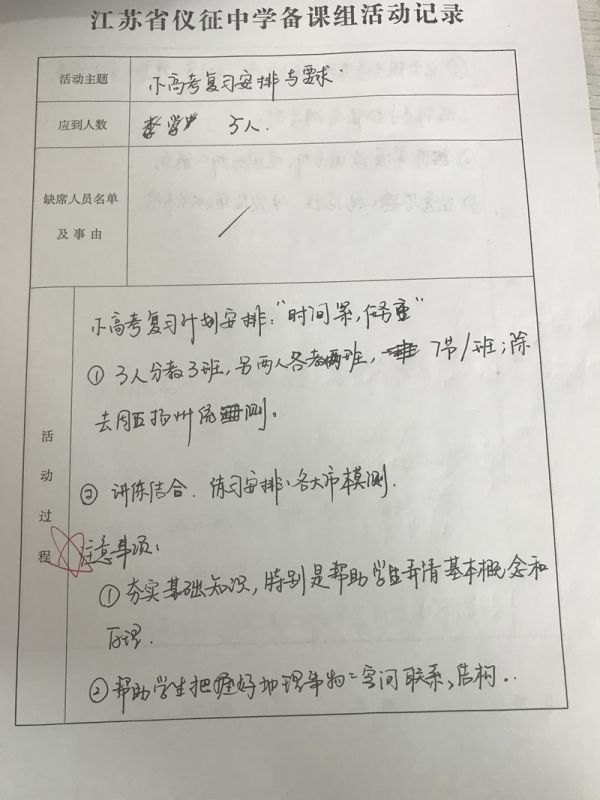 江苏省仪征中学备课组活动记录
活动主题
小高考复习安排与要求.
应到人数
3人.
缺席人员名单
及事由
活动过程
小高考复习计划安排:“时间紧,任务重”
① 3人分教3班,另两人各教两班, 7节/班;除
去周五扬州统测。
② 讲练结合. 练习安排:各大市模测.
注意事项:
① 夯实基础知识,特别是帮助学生弄清基本概念和
原理.
② 帮助学生把握好地理事物 空间联系、结构..